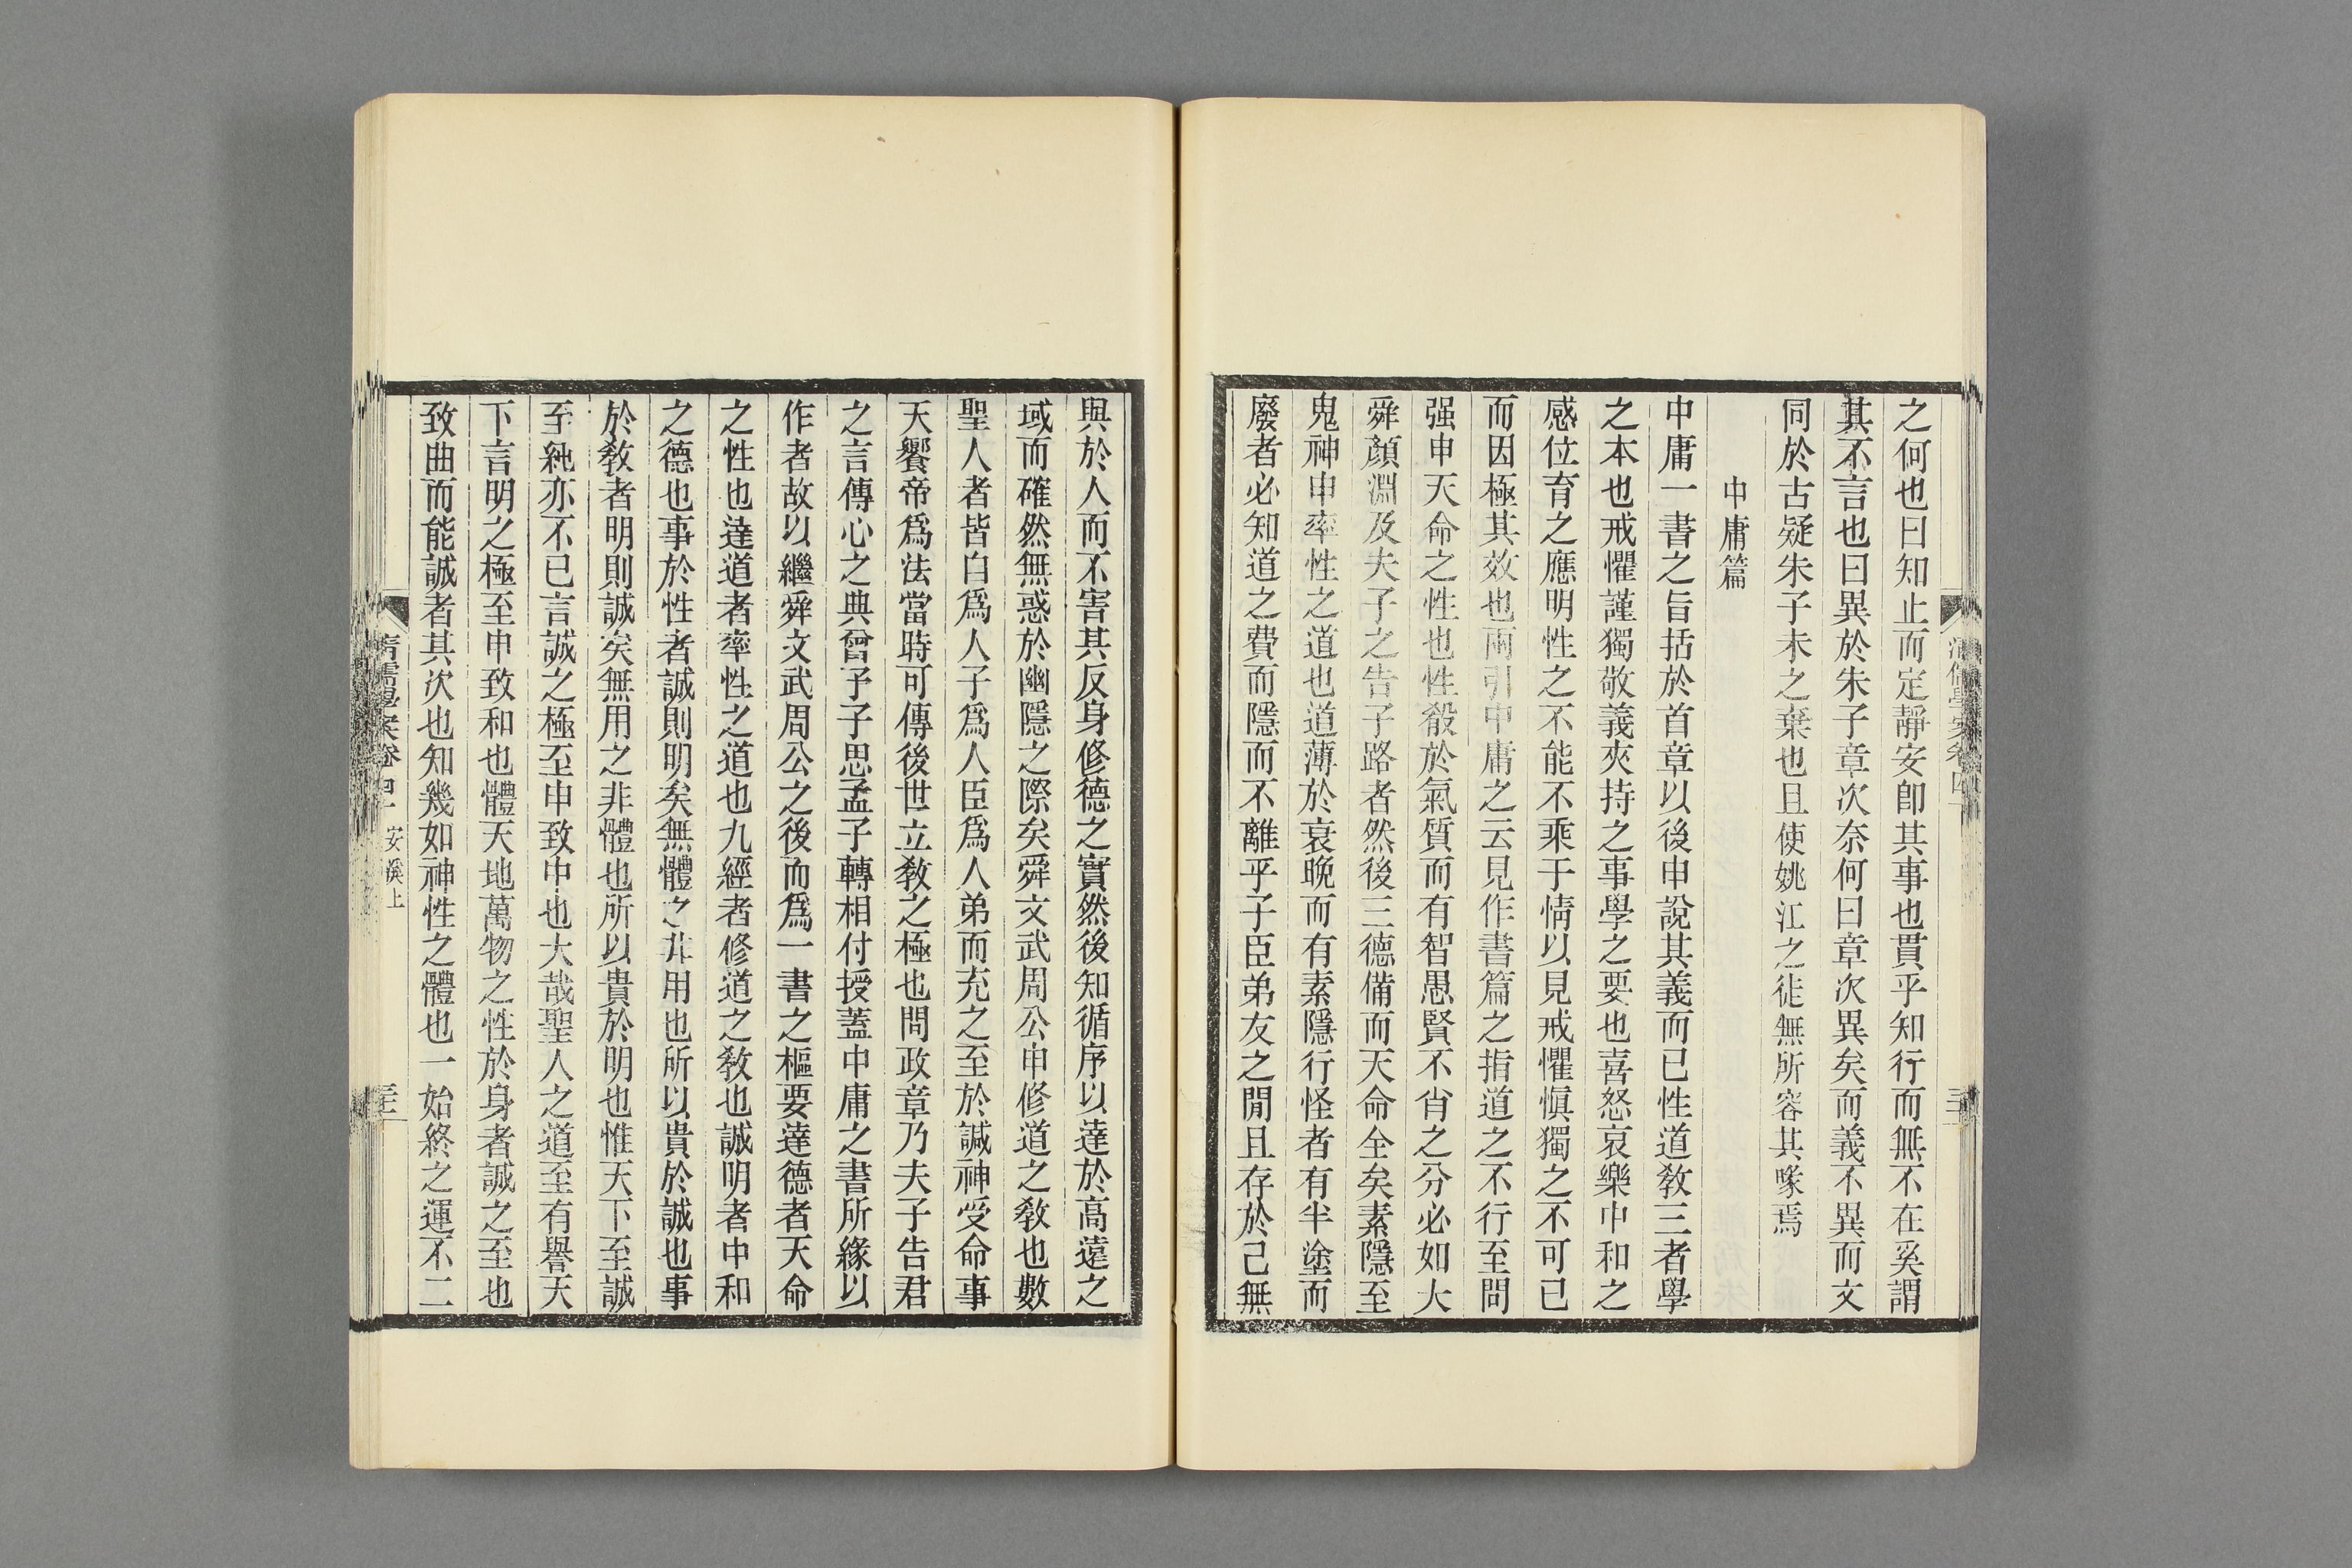 之何也曰知止而定靜安卽其事也貫乎知行而無不在奚謂
其不言也曰異於朱子章次奈何曰章次異矣而義不異而文
同於古疑朱子未之棄也且使姚江之徒無所容其喙焉
中庸篇
中庸一書之旨括於首章以後申說其義而已性道敎三者學
之本也戒懼謹獨敬義夾持之事學之要也喜怒哀樂中和之
感位育之應明性之不能不乘于情以見戒懼愼獨之不可已
而因極其效也兩引中庸之云見作書篇之指道之不行至問
强申天命之性也性殽於氣質而有智愚賢不肖之分必如大
舜顏淵及夫子之告子路者然後三德備而天命全矣素隱至
鬼神申率性之道也道薄於衰晚而有素隱行怪者有半塗而
廢者必知道之費而隱而不離乎子臣弟友之閒且存於己無
與於人而不害其反身修德之實然後知循序以達於高遠之
域而確然無惑於幽隱之際矣舜文武周公申修道之敎也數
聖人者皆自爲人子爲人臣爲人弟而充之至於諴神受命事
天饗帝爲法當時可傳後世立敎之極也問政章乃夫子告君
之言傳心之典曾子子思孟子轉相付授蓋中庸之書所緣以
作者故以繼舜文武周公之後而爲一書之樞要達德者天命
之性也達道者率性之道也九經者修道之敎也誠明者中和
之德也事於性者誠則明矣無體之非用也所以貴於誠也事
於敎者明則誠矣無用之非體也所以貴於明也惟天下至誠
至純亦不已言誠之極至申致中也大哉聖人之道至有譽天
下言明之極至申致和也體天地萬物之性於身者誠之至也
致曲而能誠者其次也知幾如神性之體也一始終之運不二
清儒學案卷四十 安溪上